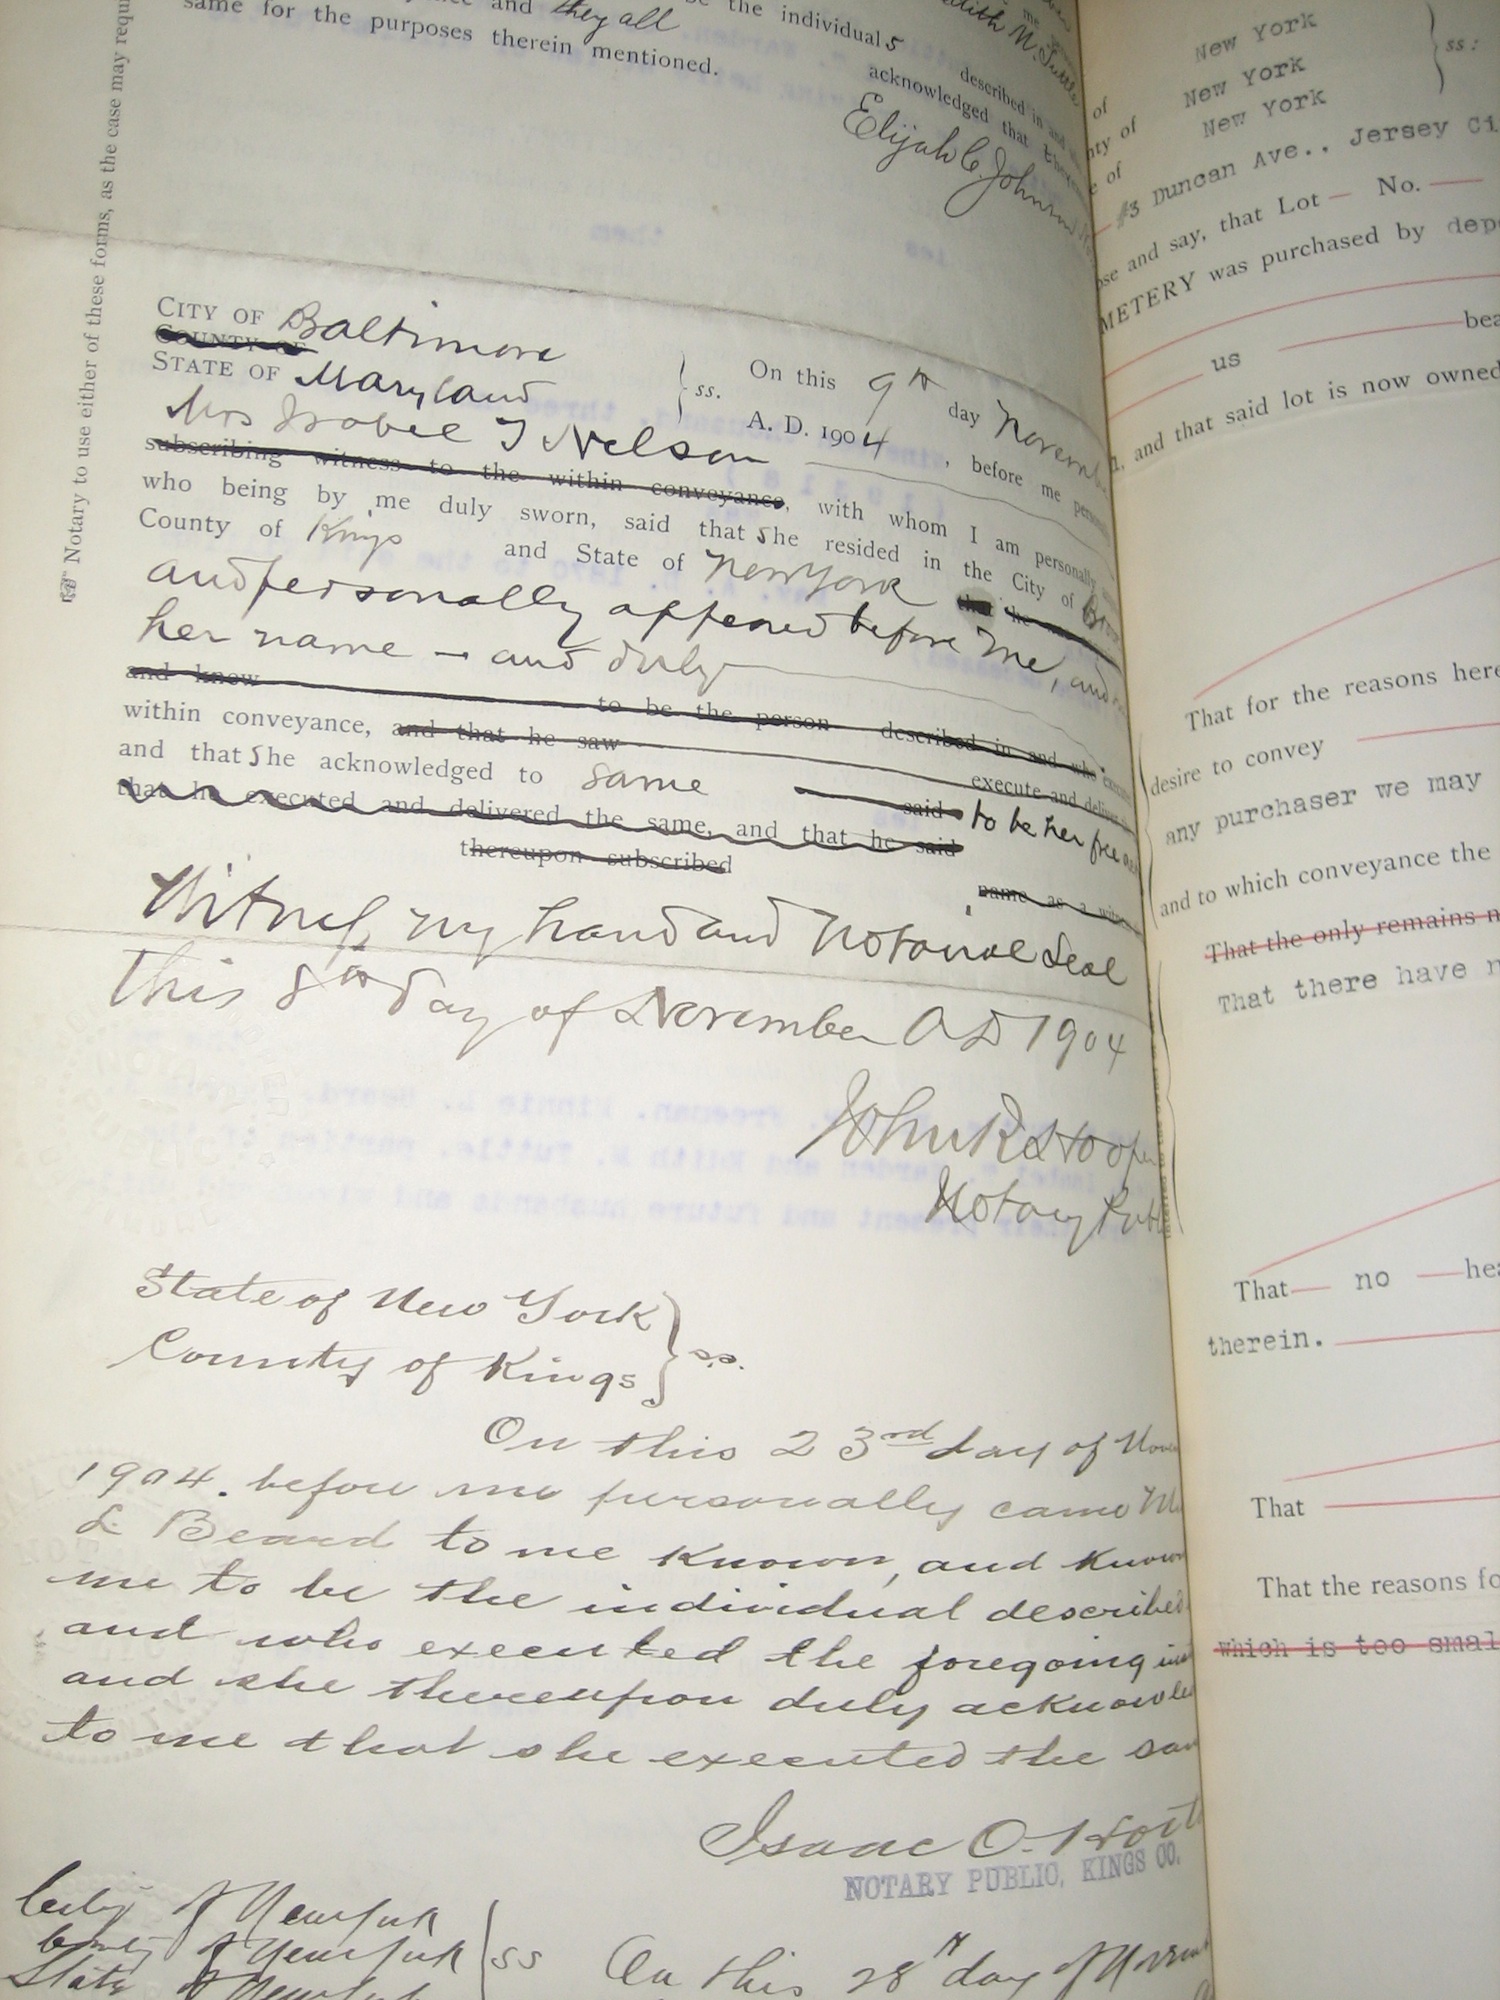 and they all
the individuals described in and
same for the purposes therein mentioned.
acknowledged that they
Elijah C. Johnson
Notary to use either of these forms, as the case may requ
CITY OF Baltimore
COUNTY OF
STATE OF Maryland
ss.
On this 9th day November
A. D. 1904, before me
Mrs Isabel T Nelson
subscribing witness to the within conveyance, with whom I am personally
who being by me duly sworn, said that She resided in the City of
County of Kings and State of New York that he
and personally appeared before me, and
her name — and duly
and know to be the person described in and who
within conveyance, and that he saw execute and deliver
and that She acknowledged to same said to be her free
that he executed and delivered the same, and that he said
thereupon subscribed name as a
Witness my hand and Notarial Seal
This 8th day of November AD 1904
John R Hooper
Notary Publ
State of New York
County of Kings
ss.
On this 23rd day of Nove
1904. before me personally came
L Beard to me known, and known
me to be the individual described
and who executed the foregoing
and she thereupon duly acknowle
to me that she executed the sam
Isaac O.
NOTARY PUBLIC, KINGS CO.
City of New York
County of New York
State of New York
ss
On this 28th day of
of New York
nty of New York
e of New York
ss:
#3 Duncan Ave., Jersey Ci
ose and say, that Lot — No. —
METERY was purchased by dep
us bea
, and that said lot is now owned
That for the reasons here
desire to convey
any purchaser we may
and to which conveyance the
That the only remains
That there have
That — no — hea
therein.
That
That the reasons fo
which is too smal